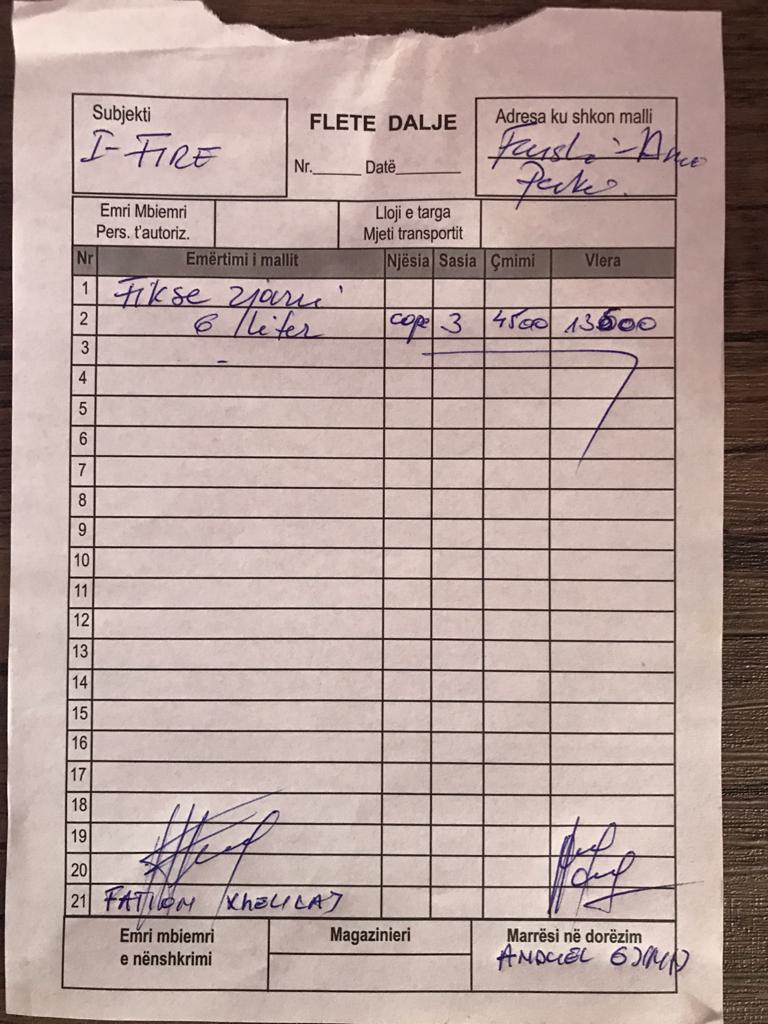 Subjekti
I-FIRE
FLETE DALJE
Nr. Datë
Adresa ku shkon malli
Emri Mbiemri
Pers. t'autoriz.
Lloji e targa
Mjeti transportit
Nr Emërtimi i mallit Njësia Sasia Çmimi Vlera
1 Fikse zjarri
2 6 liter cope 3 4500 13500
3
4
5
6
7
8
9
10
11
12
13
14
15
16
17
18
19
20
21 FATJON XHELILAJ
Emri mbiemri
e nënshkrimi
Magazinieri
Marrësi në dorëzim